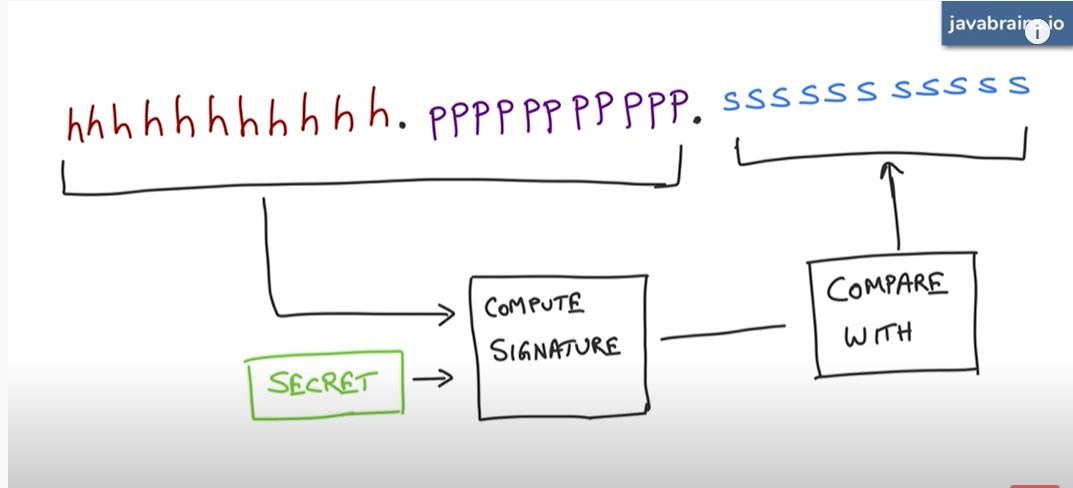 javabrains.io
hhhhhhhhhhh. PPPPPPPPPPP. sssssssssss
COMPUTE
SIGNATURE
SECRET
COMPARE
WITH